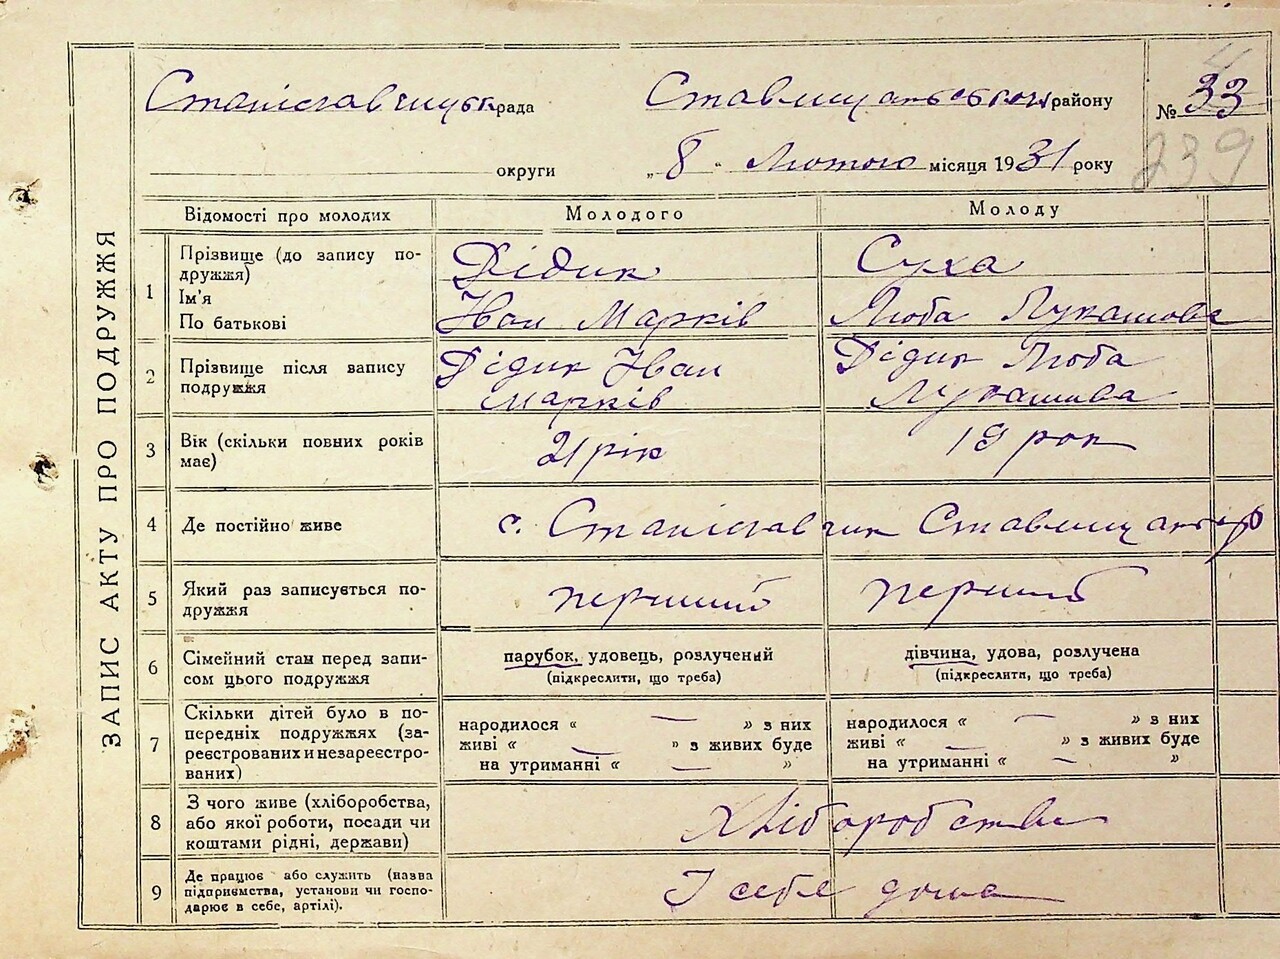 ЗАПИС АКТУ ПРО ПОДРУЖЖЯ
Станіславчицька рада Ставищанського району № 33
239
округи „8“ Лютого місяця 1931 року
Відомості про молодих Молодого Молоду
1 Прізвище (до запису подружжя) Дідик Суха
Ім'я
По батькові Іван Марків Люба Лукашова
2 Прізвище після запису подружжя Дідик Іван Марків Дідик Люба Лукашива
3 Вік (скільки повних років має) 21 рік 19 рок
4 Де постійно живе с. Станіславчик Ставищанськ р
5 Який раз записується подружжя перший перший
6 Сімейний стан перед записом цього подружжя парубок, удовець, розлучений дівчина, удова, розлучена
(підкреслити, що треба) (підкреслити, що треба)
7 Скільки дітей було в попередніх подружжях (зареєстрованих и незареєстрованих)
народилося « — » з них народилося « — » з них
живі « — » з живих буде живі « — » з живих буде
на утриманні « — » на утриманні « — »
8 З чого живе (хліборобства, або якої роботи, посади чи коштами рідні, держави) Хліборобства
9 Де працює або служить (назва підприємства, установи чи господарює в себе, артілі). У себе дома